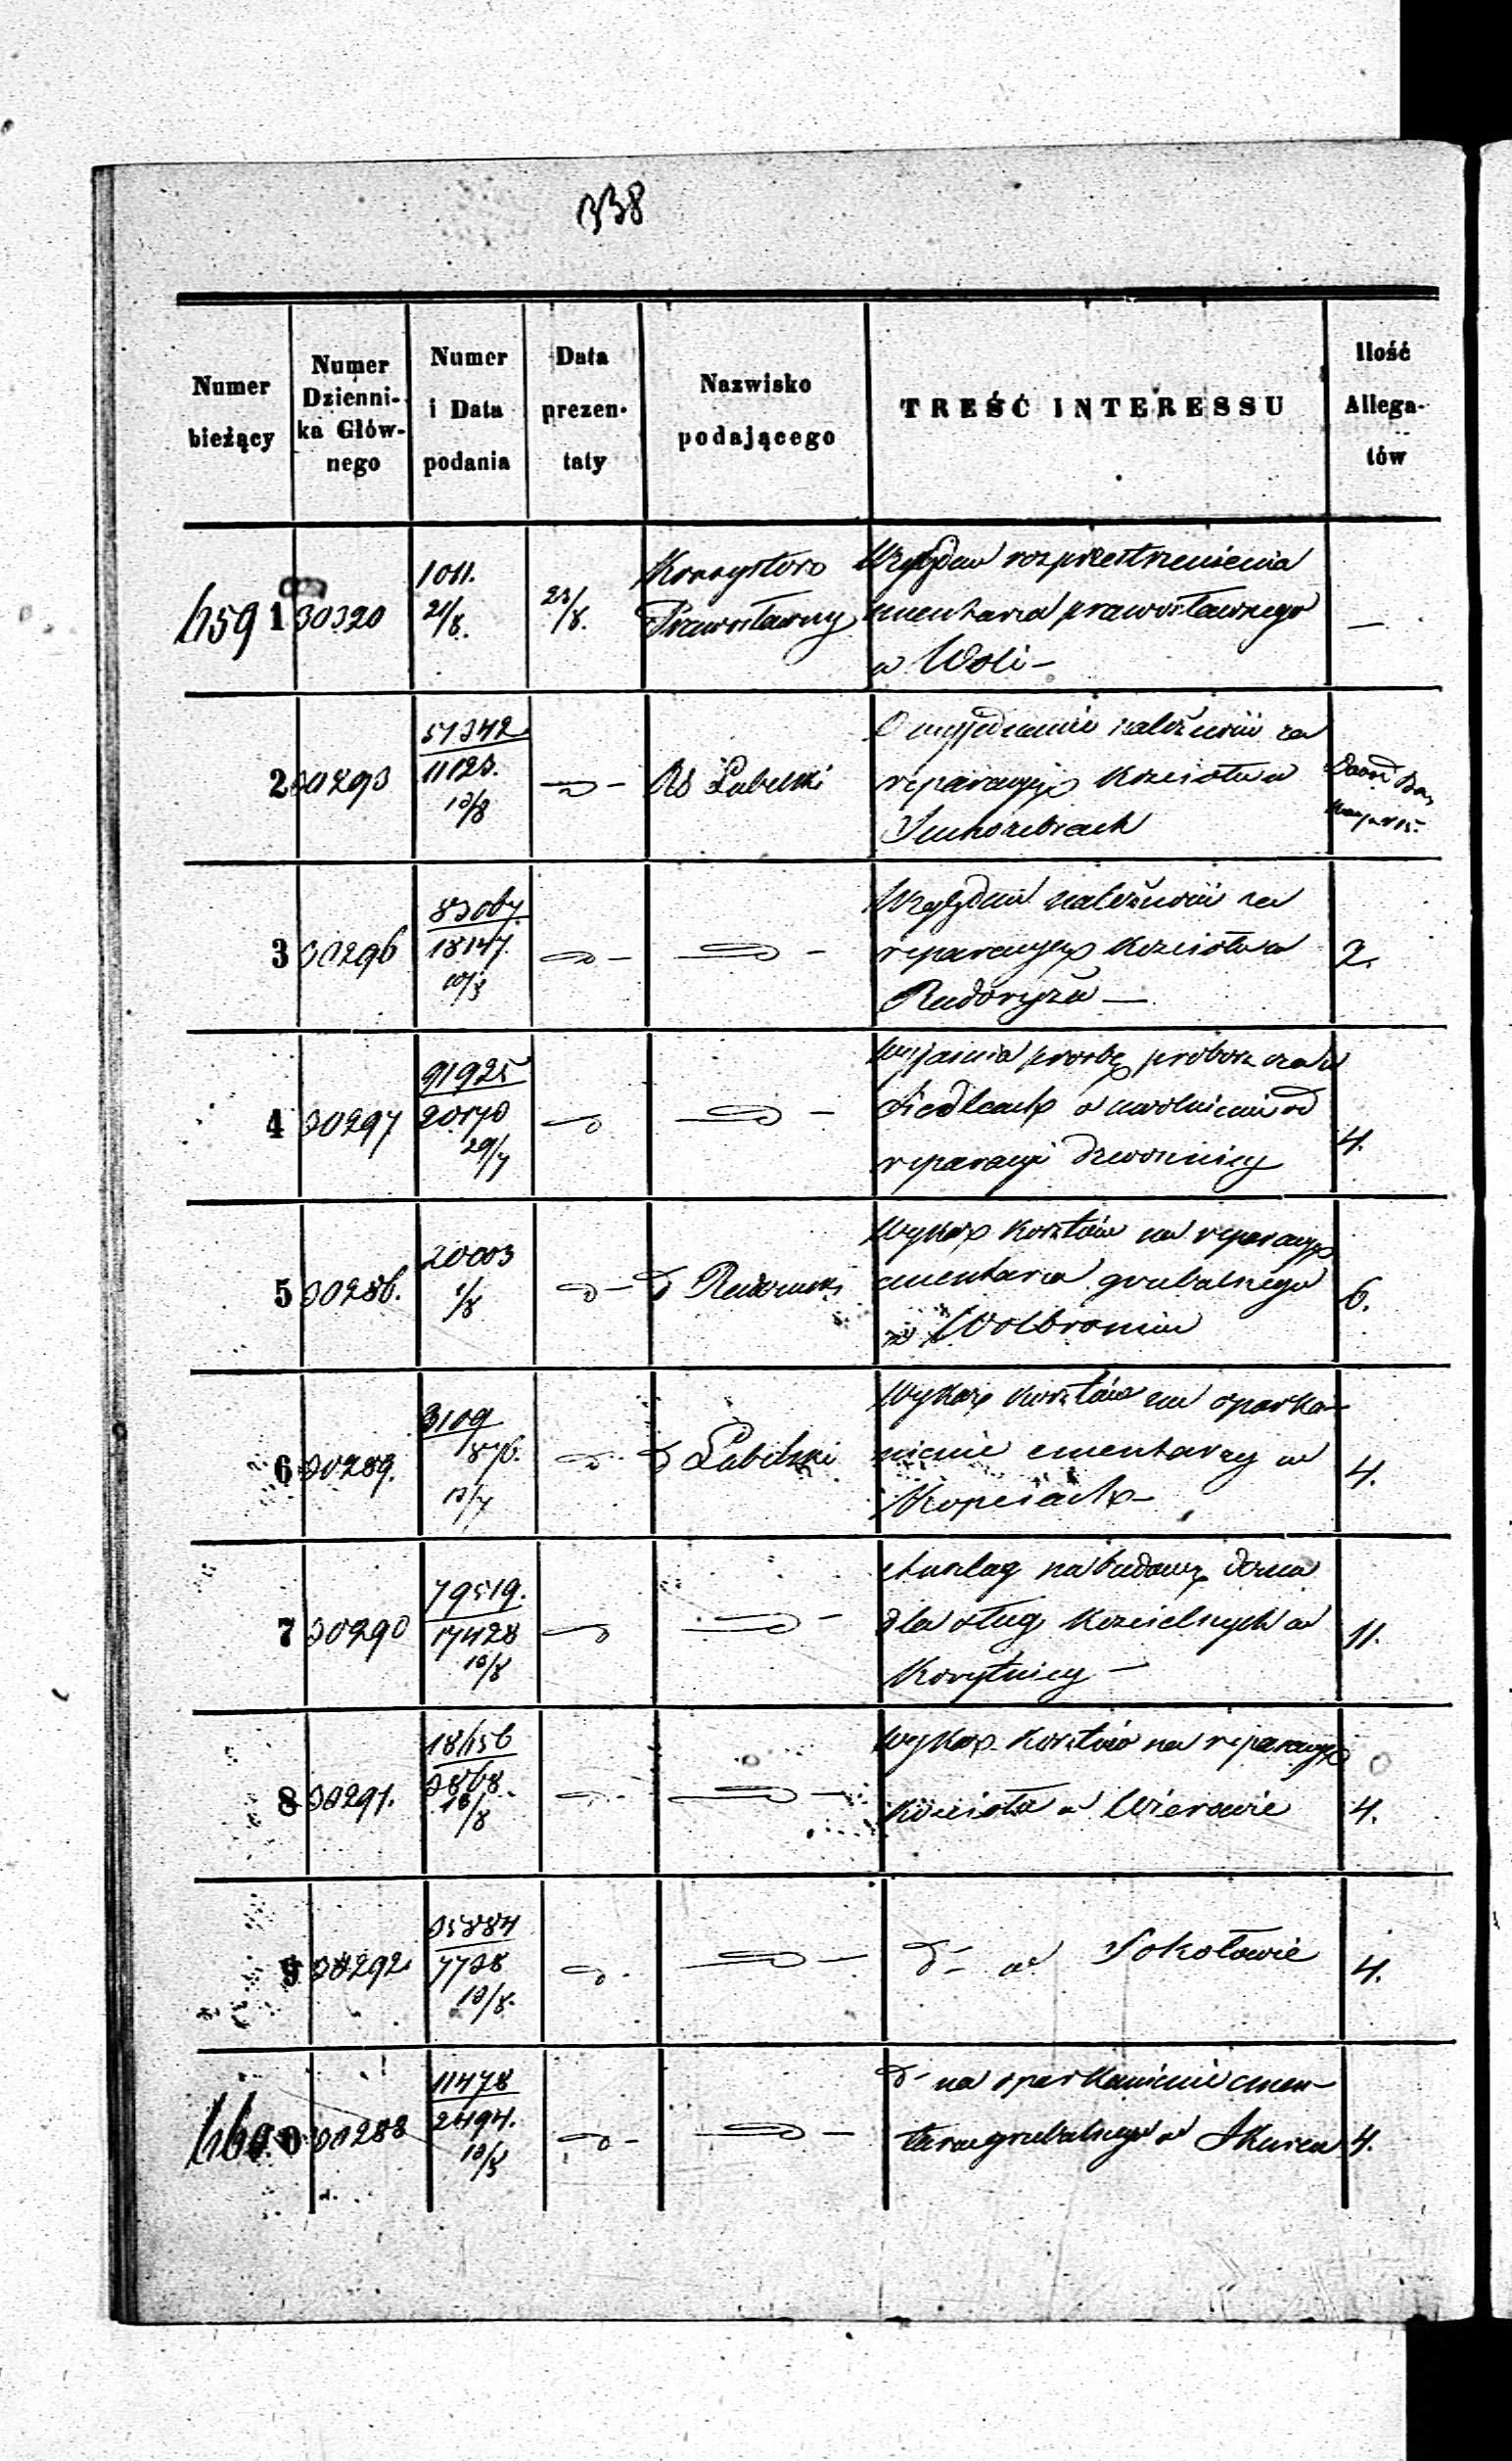 338
Numer bieżący
Numer Dzienni- ka Głów- nego
Numer i Data podania
Data prezen- taty
Nazwisko podającego
TREŚĆ INTERESSU
Ilość Allega- tów
6591 30320 1011. 21/8. 23/8. Konsystorz Prawosławny
Względem rozprzestrzenienia
cmentarza prawosławnego
w Woli – —
2 30293 51342 11123. 13/8 RG Lubelski
O wyjednanie należności za
reparacyę Kościoła w
Suchożebrach
3 30296 83067. 18147. 10/8
Względem należności za
reparacyę Kościoła w
Radoryżu — 2.
4 30297 91925 20170 29/7
Wyjaśnia prośbę proboszcza w
Siedlcach o uwolnienie od
reparacyi dzwonnicy 4.
5 30286. 20003 1/8 d Radomski
Wykaz kosztów na reparacyę
cmentarza grzebalnego
w Wolbromiu 6.
6 30289. 3109 1876. 13/7 d Lubelski
Wykaz kosztów na oparka-
nienie cmentarzy w
Kopciach – 4.
7 30290 79519. 17428 13/8
Anszlag na budowę domu
dla sług Kościelnych w
Korytnicy – 11.
8 30291. 18656 3868. 18/8
Wykaz kosztów na reparacyę
Kościoła w Wierowie 4.
9 30292. 35884 7728 13/8.
d– w Sokołowie 4.
6600 30288 11478 2494. 13/8
d– na oparkanienie cmen-
tarza grzebalnego w 4.